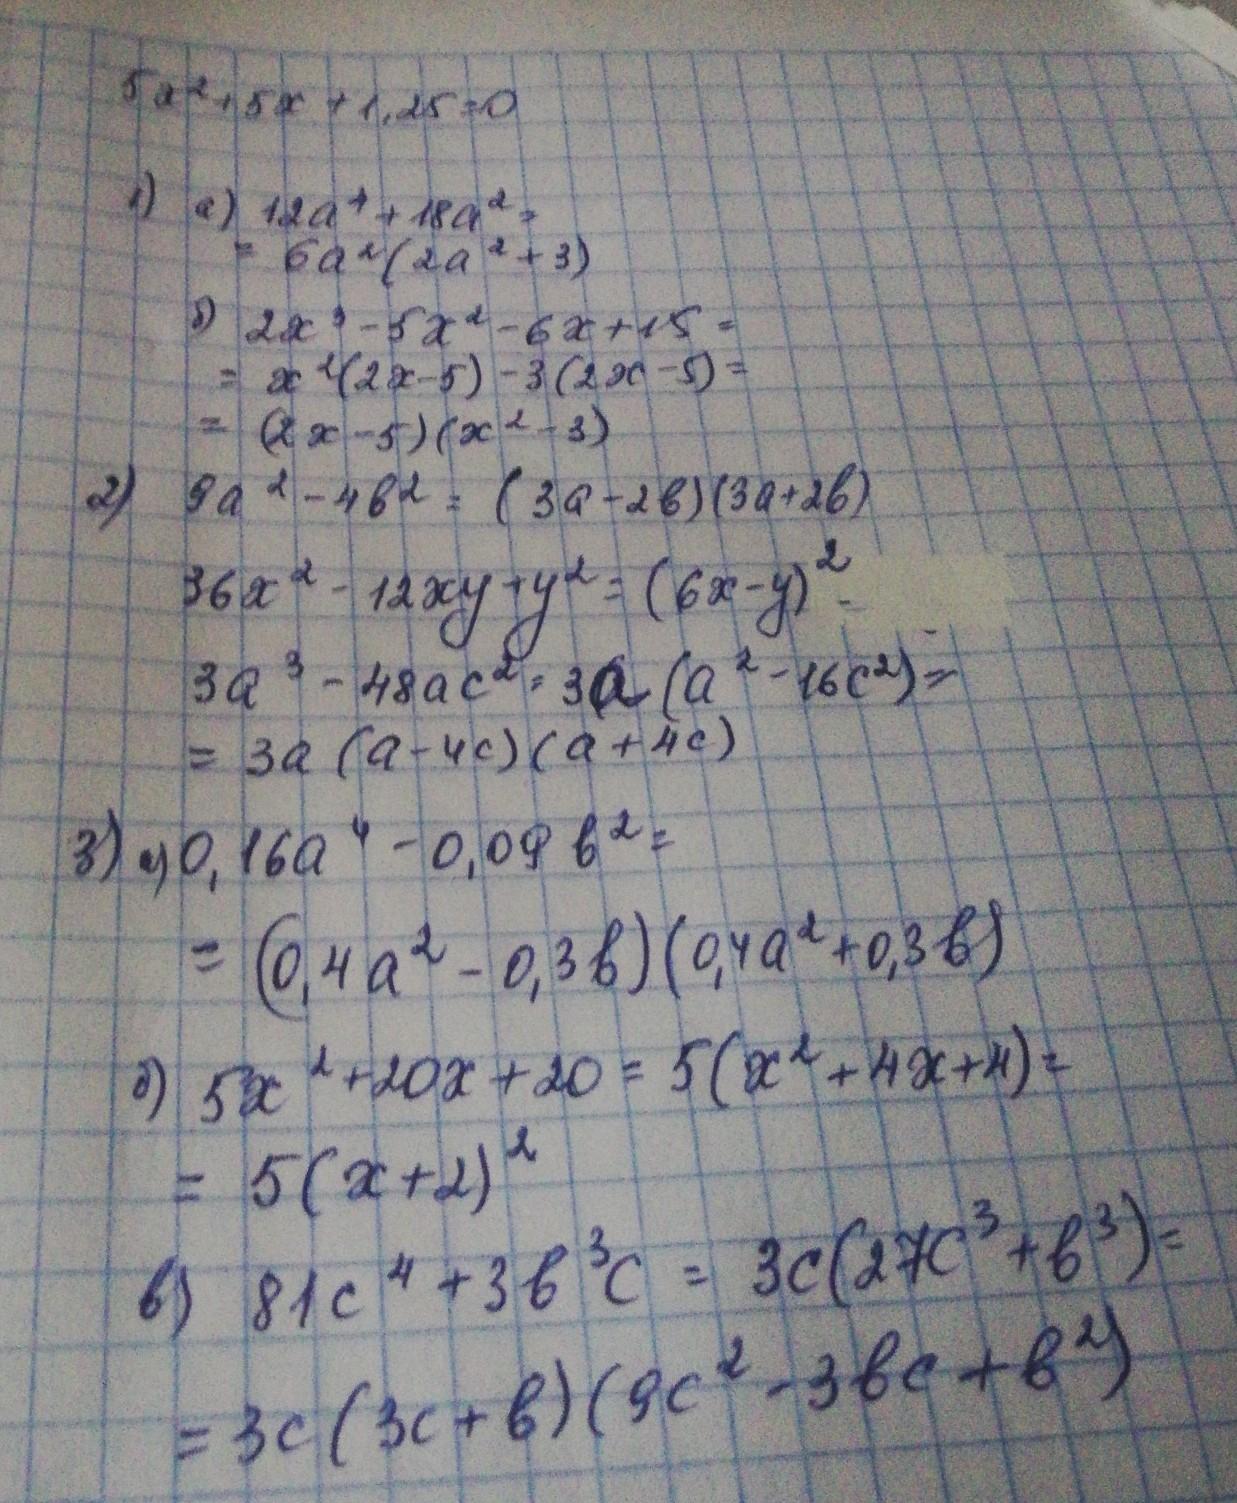 5x² + 5x + 1,25 = 0
1) а) 12a⁴ + 18a² =
= 6a²(2a² + 3)
б) 2x³ - 5x² - 6x + 15 =
= x²(2x - 5) - 3(2x - 5) =
= (2x - 5)(x² - 3)
2) 9a² - 4b² = (3a - 2b)(3a + 2b)
36x² - 12xy + y² = (6x - y)²
3a³ - 48ac² = 3a(a² - 16c²) =
= 3a(a - 4c)(a + 4c)
3) а) 0,16a⁴ - 0,09b² =
= (0,4a² - 0,3b)(0,4a² + 0,3b)
б) 5x² + 20x + 20 = 5(x² + 4x + 4) =
= 5(x + 2)²
в) 81c⁴ + 3b³c = 3c(27c³ + b³) =
= 3c(3c + b)(9c² - 3bc + b²)